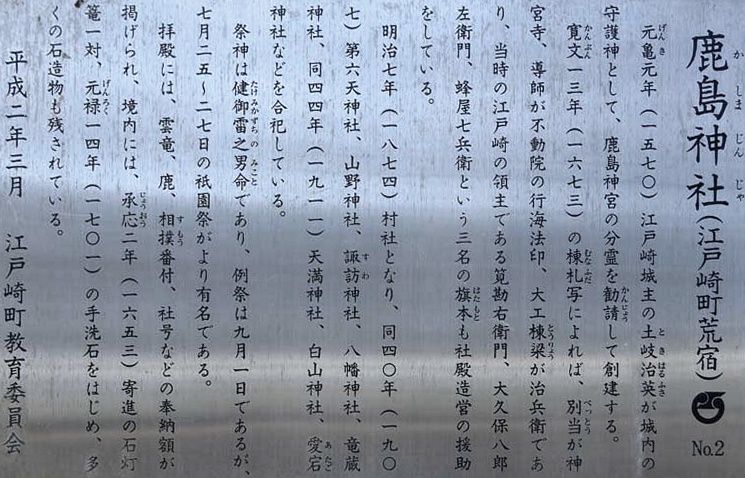 鹿島神社(江戸崎町荒宿) No.2
元亀元年(一五七〇)江戸崎城主の土岐治英が城内の
守護神として、鹿島神宮の分霊を勧請して創建する。
寛文一三年(一六七三)の棟札写によれば、別当が神
宮寺、導師が不動院の行海法印、大工棟梁が治兵衛であ
り、当時の江戸崎の領主である筧勘右衛門、大久保八郎
左衛門、蜂屋七兵衛という三名の旗本も社殿造営の援助
をしている。
明治七年(一八七四)村社となり、同四〇年(一九〇
七)第六天神社、山野神社、諏訪神社、八幡神社、竜蔵
神社、同四四年(一九一一)天満神社、白山神社、愛宕
神社などを合祀している。
祭神は健御雷之男命であり、例祭は九月一日であるが、
七月二五〜二七日の祇園祭がより有名である。
拝殿には、雲竜、鹿、相撲番付、社号などの奉納額が
掲げられ、境内には、承応二年(一六五三)寄進の石灯
篭一対、元禄一四年(一七〇一)の手洗石をはじめ、多
くの石造物も残されている。
平成二年三月 江戸崎町教育委員会